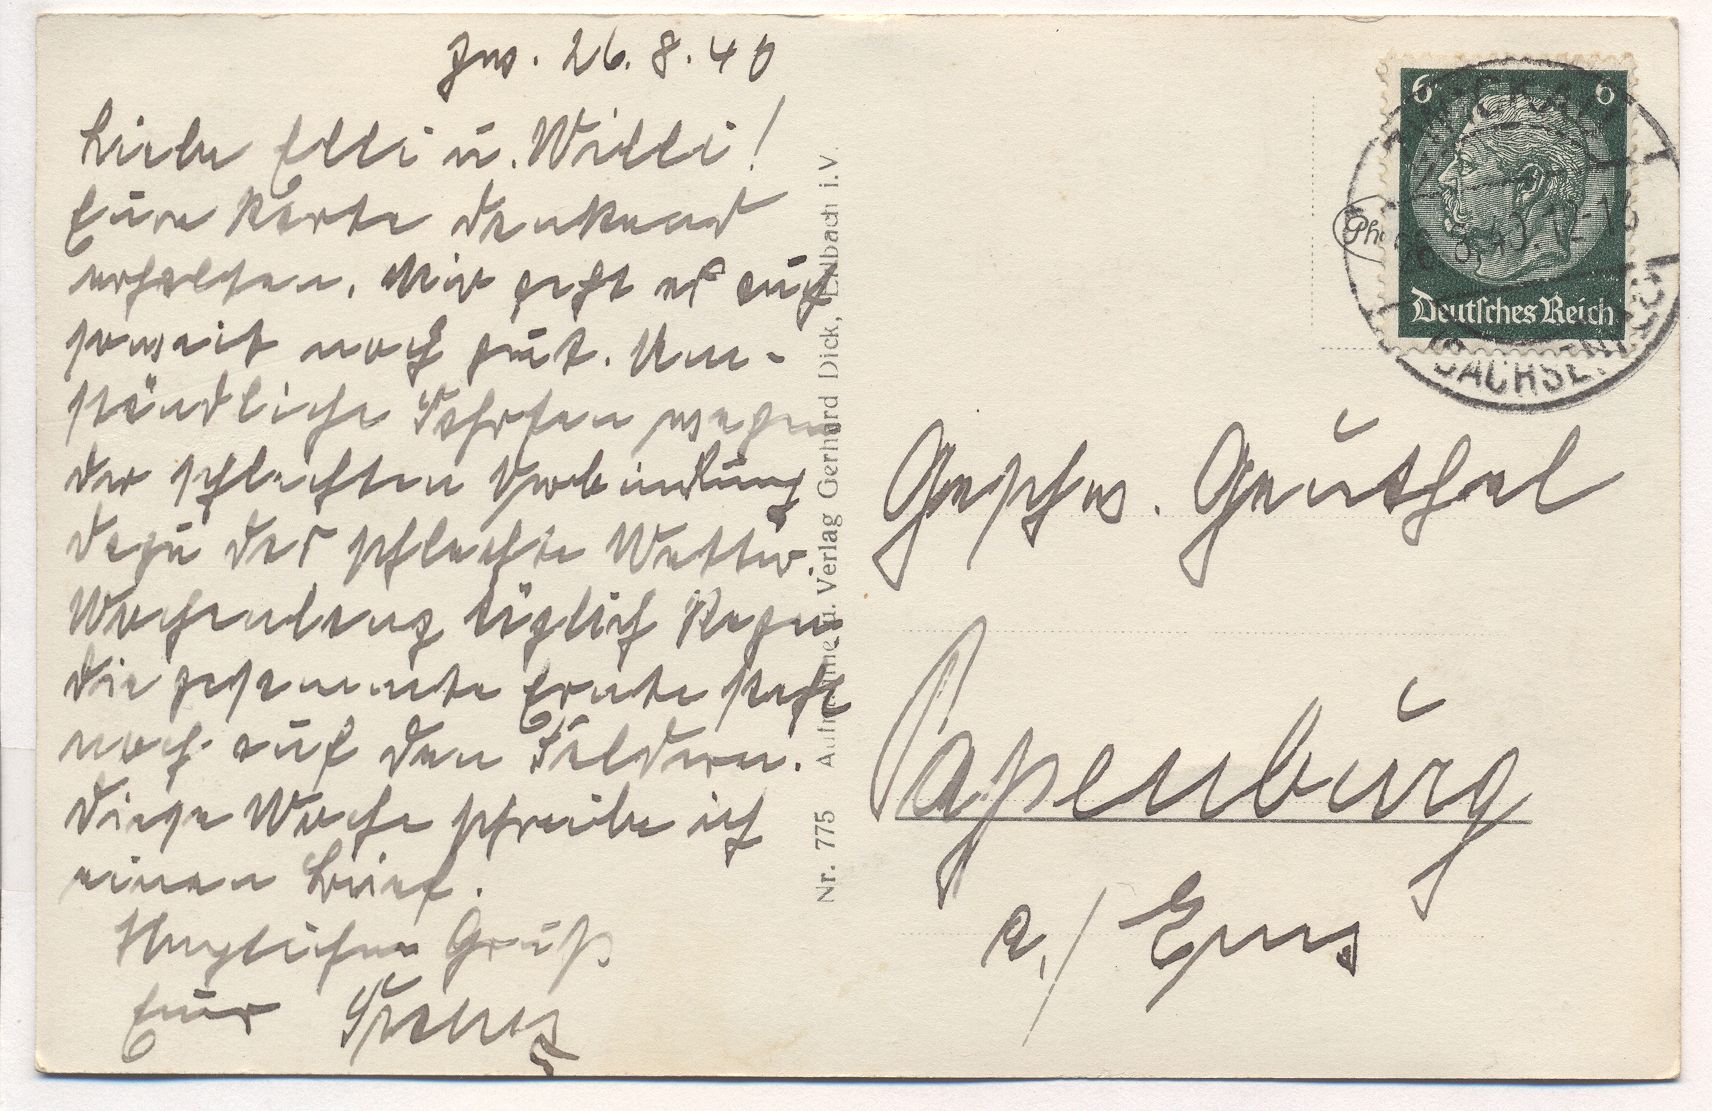 26. 8. 40
Liebe Elli u. Willi!
Eure Karte dankend
erhalten. Mir geht es auch
soweit noch gut. Um-
ständliche Fahrten wegen
der schlechten Verbindung
dazu das schlechte Wetter.
Wochenlang täglich Regen
die gesammte Ernte steht
noch auf den Feldern.
Diese Woche schreibe ich
einen Brief.
Herzlichen Gruß
Euer Franz
Nr. 775 Aufnahme u. Verlag Gerhard Dick, Erlbach i.V.
6 6
Deutsches Reich
ZWICKAU
26.8.40.
SACHSEN
Geschw. Geuthel
Papenburg
a./Ems